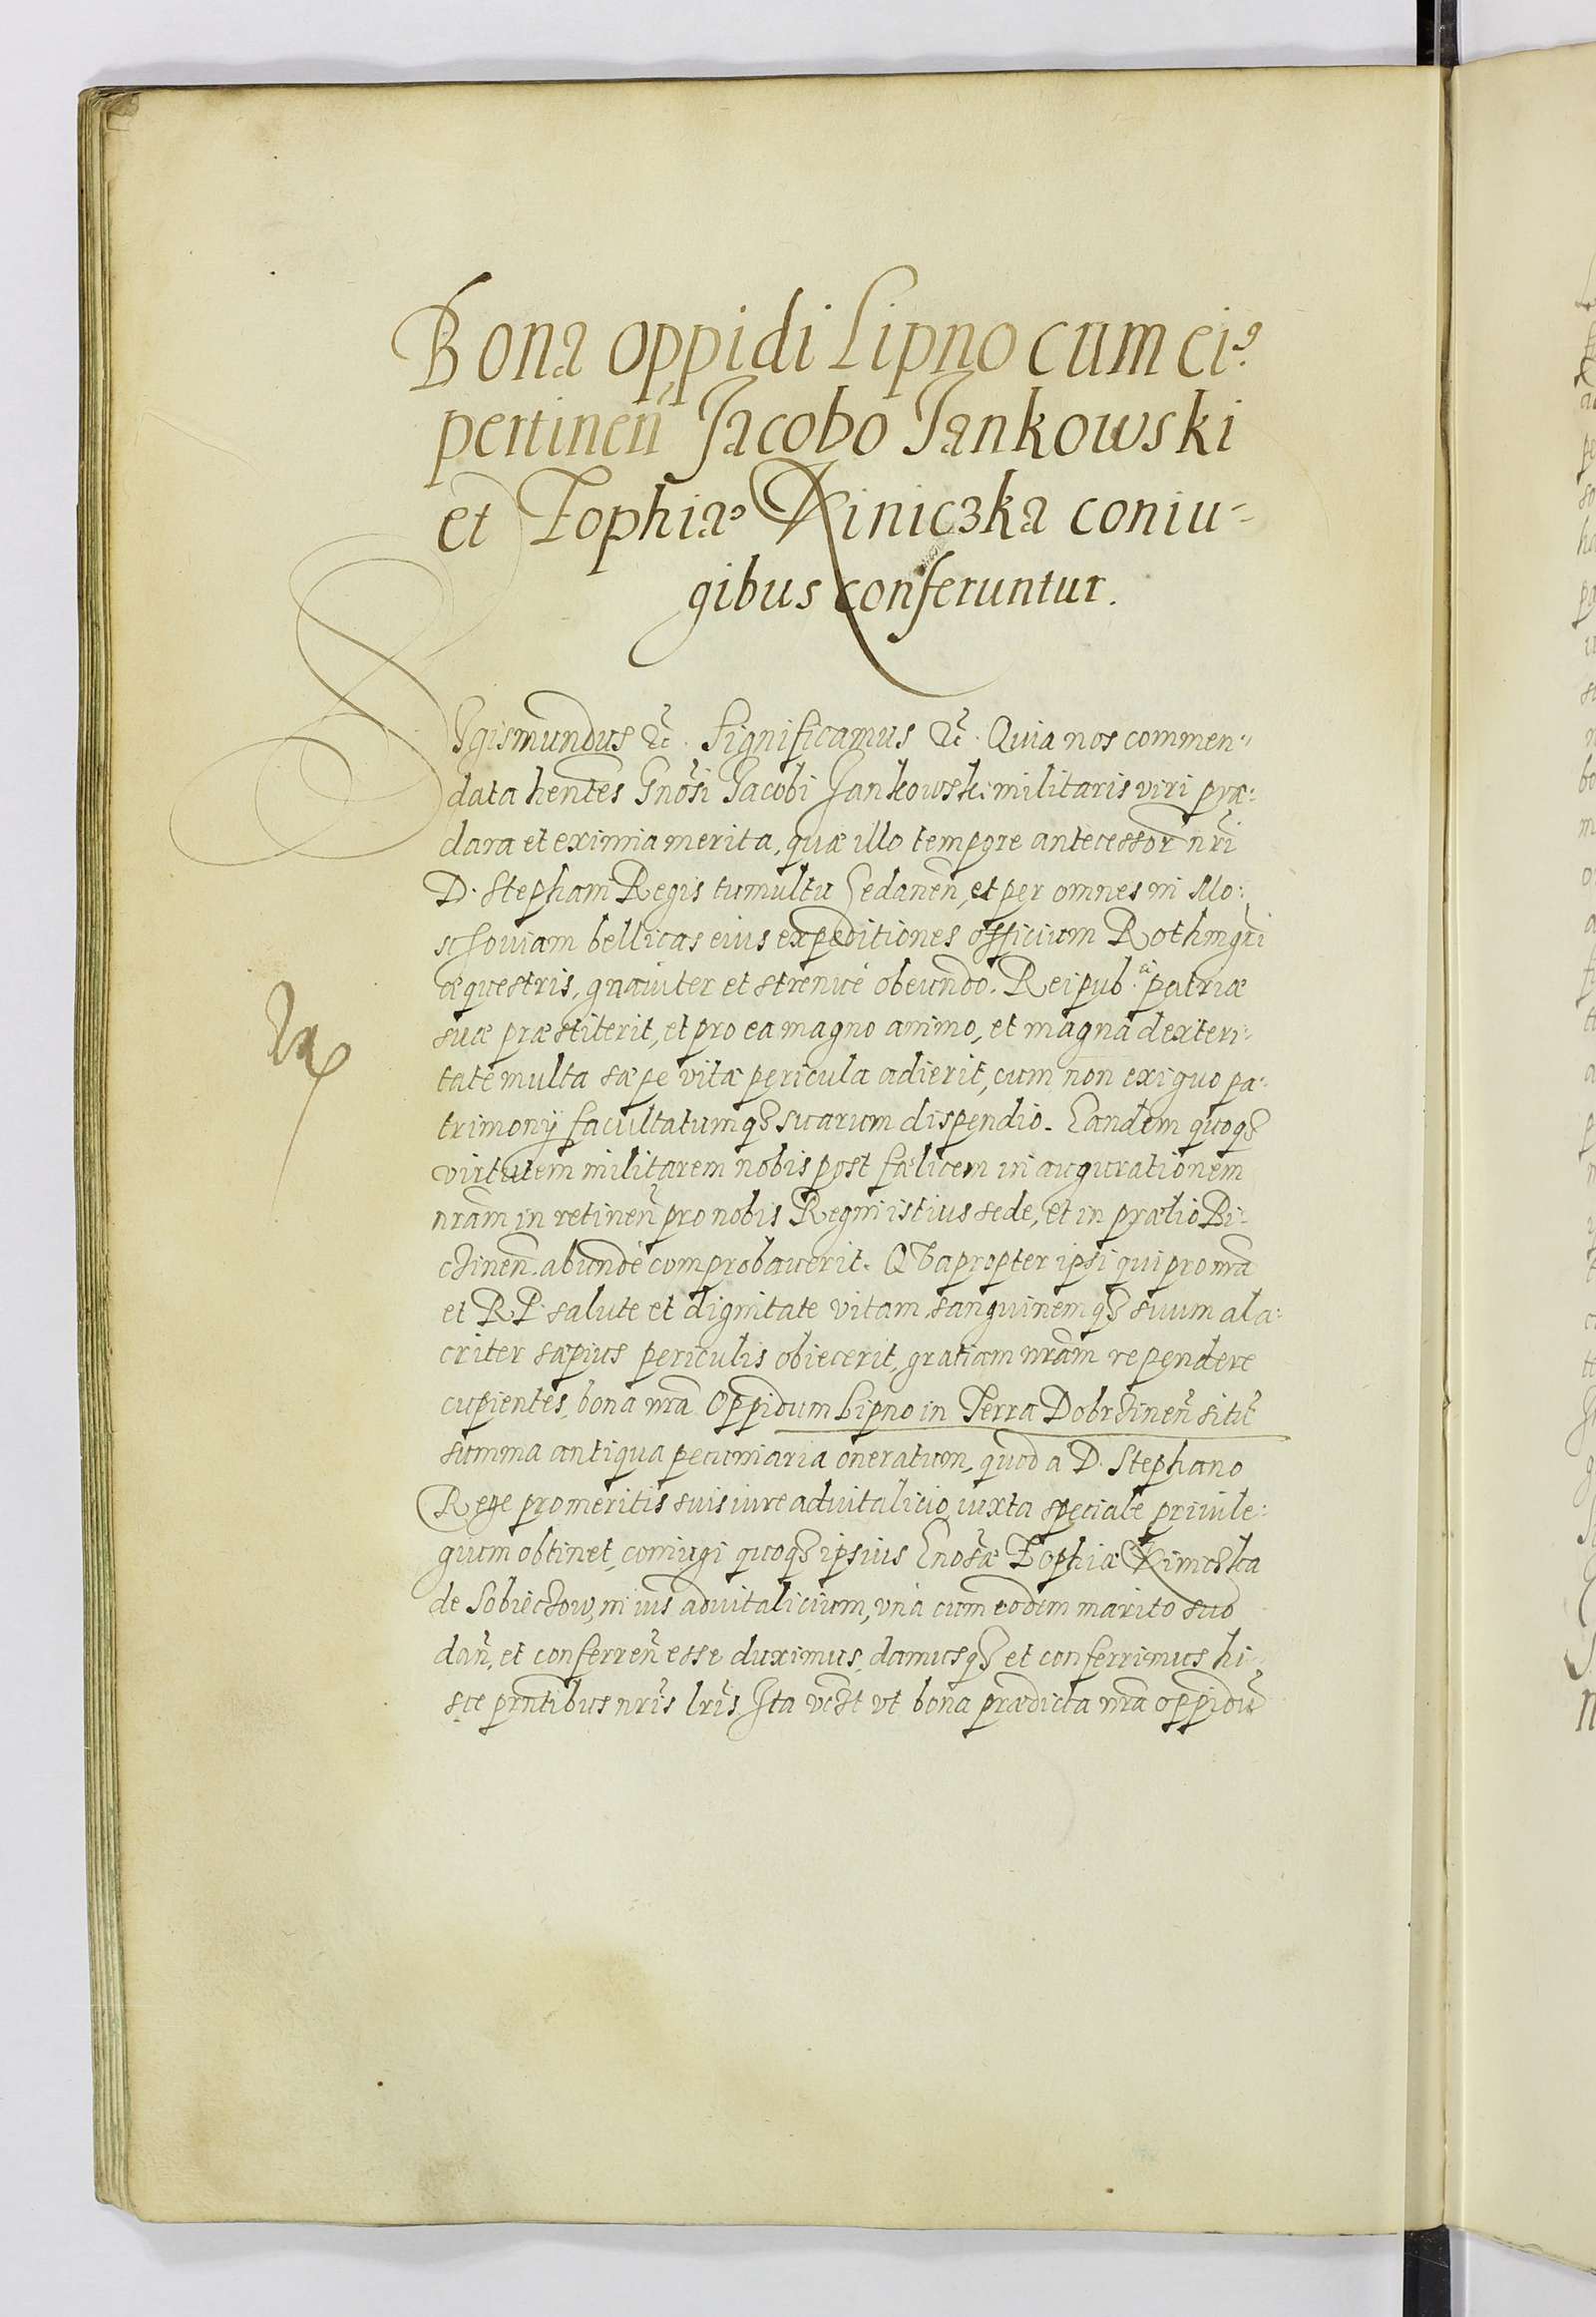 Bona oppidi Lipno cum ei⁹
pertineñ Jacobo Jankowski
et Zophiæ Xiniczka coniu-
gibus conferuntur.
SYgismundus &c̃. Significamus &c̃. Quia nos commen-
data hentes Gnosi Jacobi Jankowski militaris viri præ-
clara et eximia merita, quæ illo tempore antecessor nri
D. Stephani Regis tumultu Gedaneñ, et per omnes in Mo-
schoviam bellicas eius expeditiones officium Rothmgri
æquestris, gnaviter et strenue obeundo. Reipub. patriæ
suæ præstiterit, et pro ea magno animo, et magna dexteri-
tate multa sæpe vitæ pericula adierit, cum non exiguo pa-
trimonij facultatumqȝ suarum dispendio. Eandem quoqȝ
virtutem militarem nobis post fælicem inaugurationem
nram in retineñ pro nobis Regni istius sede, et in prælio Bi-
czineñ. abunde comprobaverit. Quapropter ipsi qui pro nra
et RP. salute et dignitate vitam sanguinemqȝ suum ala-
criter sæpius periculis obiecerit, gratiam nram rependere
cupientes, bona nra Oppidum Lipno in Terra Dobrzineñ sitũ
summa antiqua pecuniaria oneratum, quod a D. Stephano
Rege pro meritis suis iure advitalicio iuxta speciale privile-
gium obtinet, coniugi quoqȝ ipsius Gnosæ Zophiæ Ximczka
de Sobieczow, in ius advitalicium, vna cum eodem marito suo
dañ, et conferreñ esse duximus, damusqȝ et conferrimus hi-
sce prntibus nris lris. Ita vczt vt bona prædicta nra oppidũ